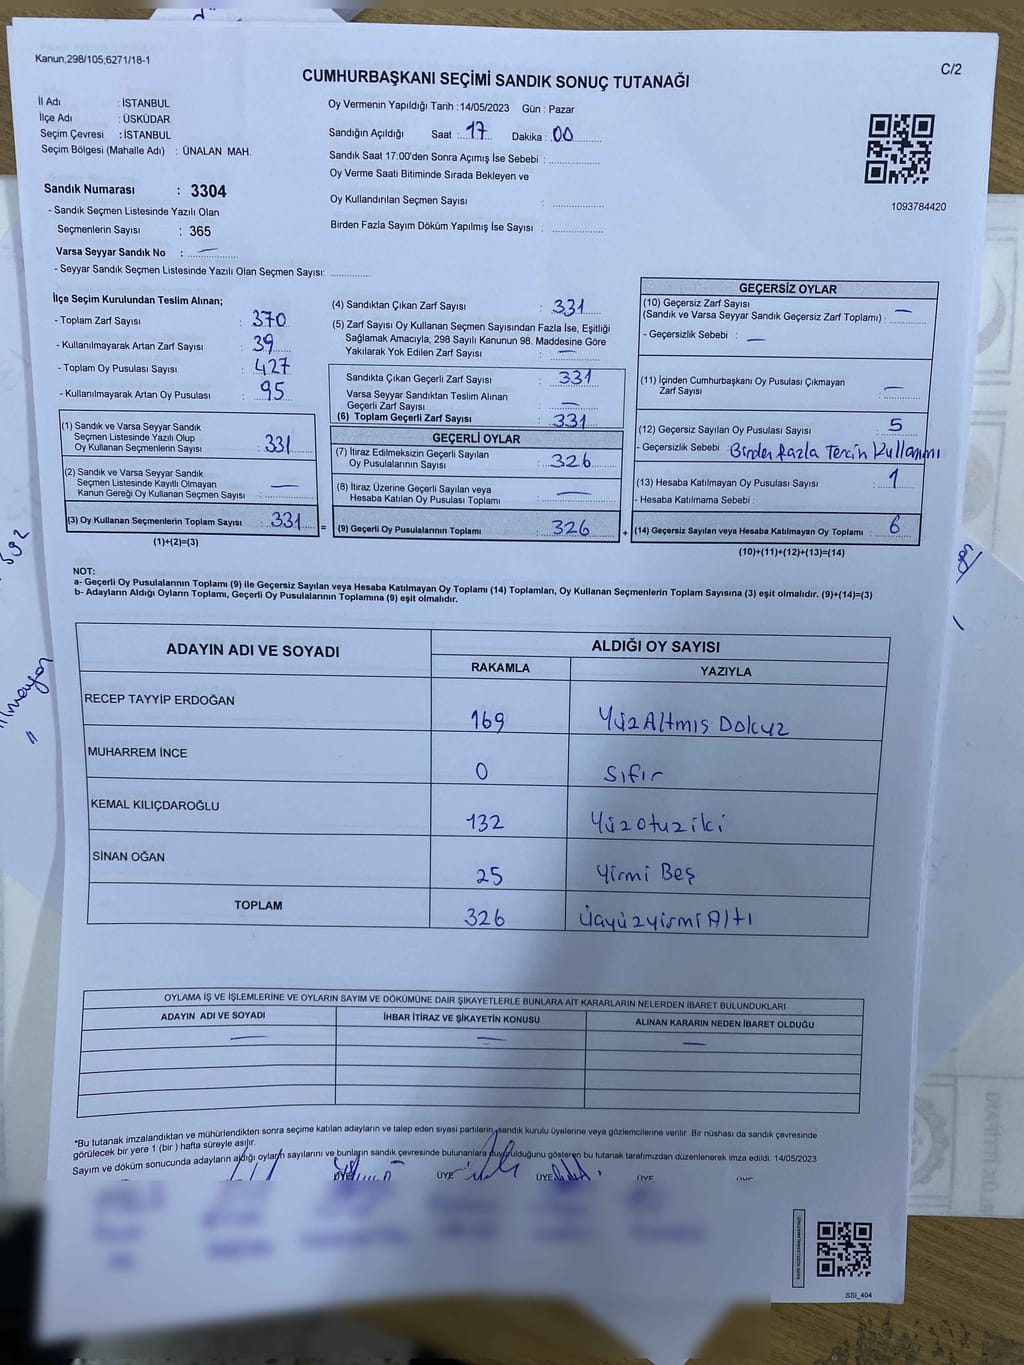 Kanun;298/105;6271/18-1
C/2
CUMHURBAŞKANI SEÇİMİ SANDIK SONUÇ TUTANAĞI
İl Adı : İSTANBUL
İlçe Adı : ÜSKÜDAR
Seçim Çevresi : İSTANBUL
Seçim Bölgesi (Mahalle Adı) : ÜNALAN MAH.
Sandık Numarası : 3304
- Sandık Seçmen Listesinde Yazılı Olan
Seçmenlerin Sayısı : 365
Varsa Seyyar Sandık No : —
- Seyyar Sandık Seçmen Listesinde Yazılı Olan Seçmen Sayısı:
Oy Vermenin Yapıldığı Tarih :14/05/2023 Gün : Pazar
Sandığın Açıldığı Saat : 17 Dakika : 00
Sandık Saat 17:00'den Sonra Açımış İse Sebebi :
Oy Verme Saati Bitiminde Sırada Bekleyen ve
Oy Kullandırılan Seçmen Sayısı :
Birden Fazla Sayım Döküm Yapılmış İse Sayısı :
1093784420
İlçe Seçim Kurulundan Teslim Alınan;
- Toplam Zarf Sayısı : 370
- Kullanılmayarak Artan Zarf Sayısı : 39
- Toplam Oy Pusulası Sayısı : 427
- Kullanılmayarak Artan Oy Pusulası : 95
(1) Sandık ve Varsa Seyyar Sandık
Seçmen Listesinde Yazılı Olup
Oy Kullanan Seçmenlerin Sayısı : 331
(2) Sandık ve Varsa Seyyar Sandık
Seçmen Listesinde Kayıtlı Olmayan
Kanun Gereği Oy Kullanan Seçmen Sayısı : —
(3) Oy Kullanan Seçmenlerin Toplam Sayısı : 331
(1)+(2)=(3)
(4) Sandıktan Çıkan Zarf Sayısı : 331
(5) Zarf Sayısı Oy Kullanan Seçmen Sayısından Fazla İse, Eşitliği
Sağlamak Amacıyla; 298 Sayılı Kanunun 98. Maddesine Göre
Yakılarak Yok Edilen Zarf Sayısı : —
Sandıkta Çıkan Geçerli Zarf Sayısı : 331
Varsa Seyyar Sandıktan Teslim Alınan
Geçerli Zarf Sayısı : —
(6) Toplam Geçerli Zarf Sayısı : 331
GEÇERLİ OYLAR
(7) İtiraz Edilmeksizin Geçerli Sayılan
Oy Pusulalarının Sayısı : 326
(8) İtiraz Üzerine Geçerli Sayılan veya
Hesaba Katılan Oy Pusulası Toplamı : —
= (9) Geçerli Oy Pusulalarının Toplamı : 326 +
GEÇERSİZ OYLAR
(10) Geçersiz Zarf Sayısı
(Sandık ve Varsa Seyyar Sandık Geçersiz Zarf Toplamı) : —
- Geçersizlik Sebebi : —
(11) İçinden Cumhurbaşkanı Oy Pusulası Çıkmayan
Zarf Sayısı : —
(12) Geçersiz Sayılan Oy Pusulası Sayısı : 5
- Geçersizlik Sebebi Birden fazla Tercin Kullanımı
(13) Hesaba Katılmayan Oy Pusulası Sayısı : 1
- Hesaba Katılmama Sebebi :
(14) Geçersiz Sayılan veya Hesaba Katılmayan Oy Toplamı : 6
(10)+(11)+(12)+(13)=(14)
NOT:
a- Geçerli Oy Pusulalarının Toplamı (9) ile Geçersiz Sayılan veya Hesaba Katılmayan Oy Toplamı (14) Toplamları, Oy Kullanan Seçmenlerin Toplam Sayısına (3) eşit olmalıdır. (9)+(14)=(3)
b- Adayların Aldığı Oyların Toplamı, Geçerli Oy Pusulalarının Toplamına (9) eşit olmalıdır.
ADAYIN ADI VE SOYADI ALDIĞI OY SAYISI
RAKAMLA YAZIYLA
RECEP TAYYİP ERDOĞAN 169 YüzAltmış Dokuz
MUHARREM İNCE 0 Sıfır
KEMAL KILIÇDAROĞLU 132 Yüzotuziki
SİNAN OĞAN 25 Yirmi Beş
TOPLAM 326 ÜçyüzyirmiAltı
OYLAMA İŞ VE İŞLEMLERİNE VE OYLARIN SAYIM VE DÖKÜMÜNE DAİR ŞİKAYETLERLE BUNLARA AİT KARARLARIN NELERDEN İBARET BULUNDUKLARI
ADAYIN ADI VE SOYADI İHBAR İTİRAZ VE ŞİKAYETİN KONUSU ALINAN KARARIN NEDEN İBARET OLDUĞU
— — —
*Bu tutanak imzalandıktan ve mühürlendikten sonra seçime katılan adayların ve talep eden siyasi partilerin, sandık kurulu üyelerine veya gözlemcilerine verilir. Bir nüshası da sandık çevresinde
görülecek bir yere 1 (bir ) hafta süreyle asılır.
Sayım ve döküm sonucunda adayların aldığı oyların sayılarını ve bunların sandık çevresinde bulunanlara duyurulduğunu gösteren bu tutanak tarafımızdan düzenlenerek imza edildi. 14/05/2023
ÜYE ÜYE ÜYE
SSİ_404